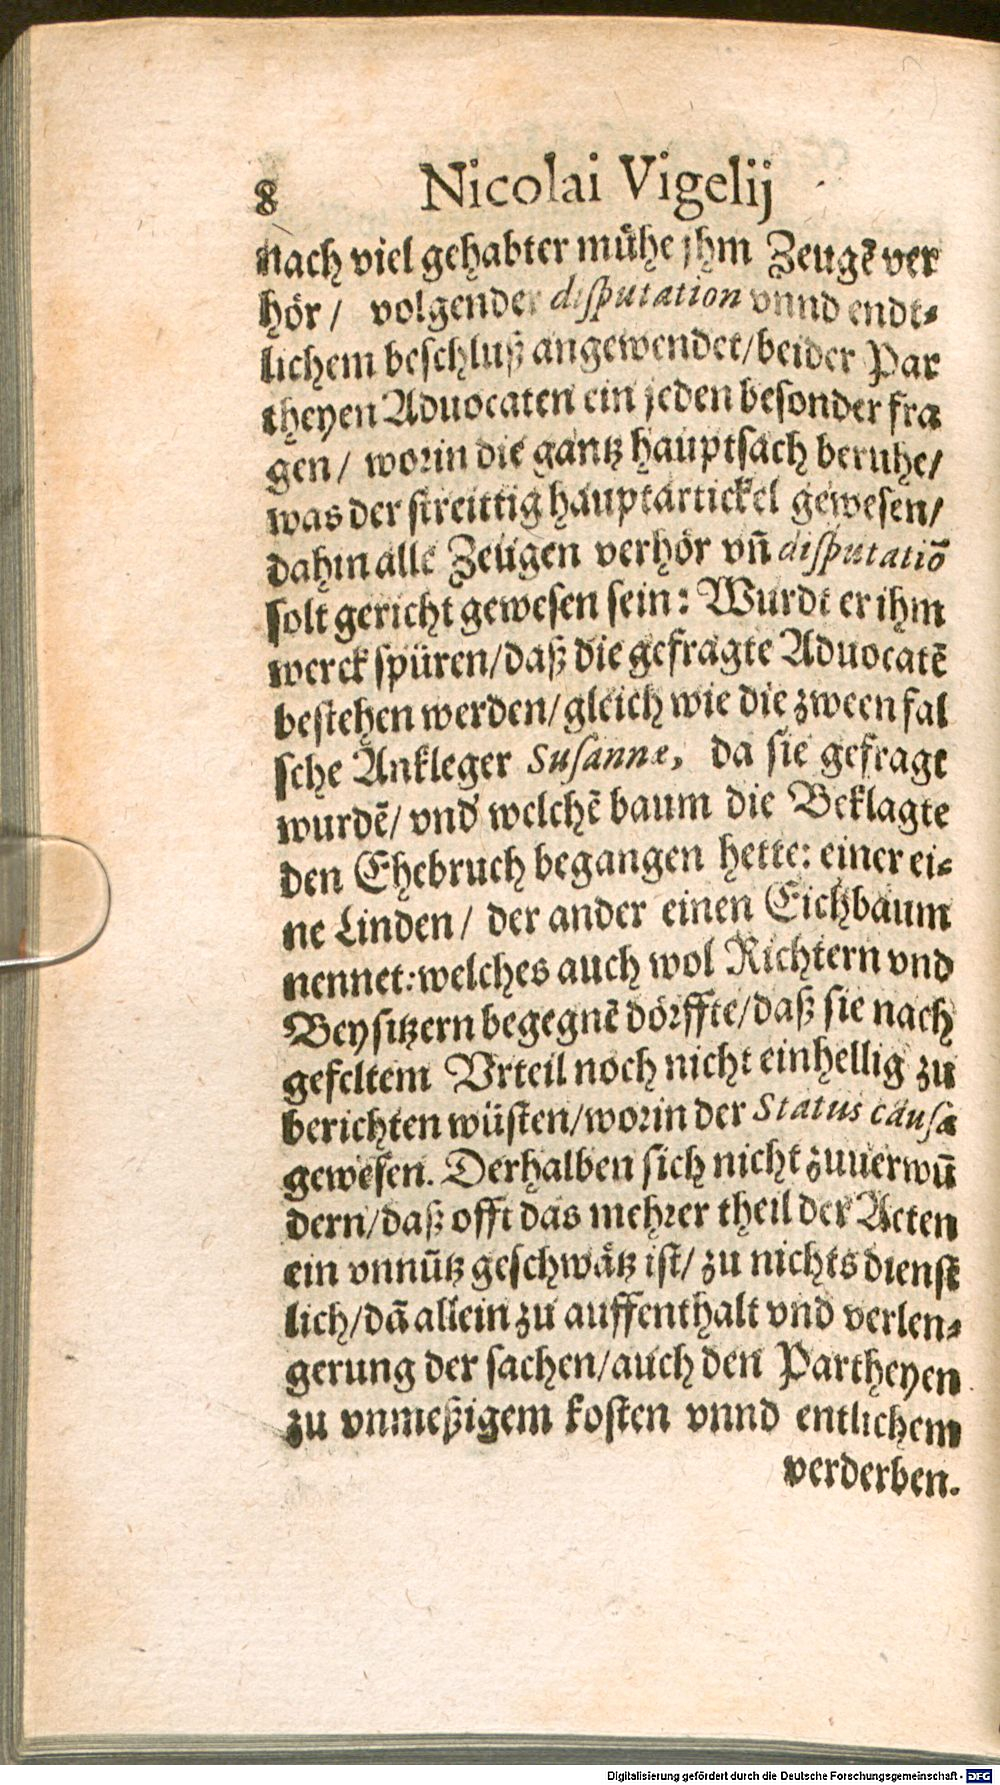 8 Nicolai Vigelij
nach viel gehabter mühe jhm Zeugẽ ver
hör / volgender disputation vnnd endt-
lichem beschluß angewendet/beider Par
theyen Aduocaten ein jeden besonder fra
gen / worin die gantz hauptsach beruhe/
was der streittig hauptartickel gewesen/
dahin alle Zeugen verhör vñ disputatiõ
solt gericht gewesen sein: Wurdt er ihm
werck spüren/daß die gefragte Aduocatẽ
bestehen werden/gleich wie die zween fal
sche Ankleger Susannæ, da sie gefragt
wurdẽ/ vnd welchẽ baum die Beklagte
den Ehebruch begangen hette: einer ei-
ne Linden / der ander einen Eichbaum
nennet: welches auch wol Richtern vnd
Beysitzern begegnẽ dörffte/daß sie nach
gefeltem Vrteil noch nicht einhellig zu
berichten wüsten/worin der Status causæ
gewesen. Derhalben sich nicht zuuerwũ
dern/daß offt das mehrer theil der Acten
ein vnnütz geschwätz ist/ zu nichts dienst
lich/dã allein zu auffenthalt vnd verlen-
gerung der sachen/auch den Partheyen
zu vnmeßigem kosten vnnd entlichem
verderben.
Digitalisierung gefördert durch die Deutsche Forschungsgemeinschaft - DFG